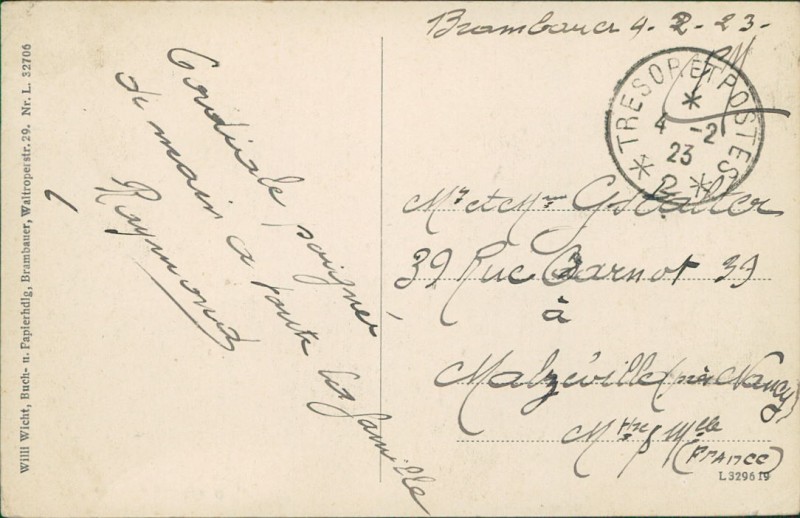 Brambauer 4-2-23-
TRESOR ET POSTES
4 -2
23
* 2 *
Mr et Mme Gstalter
39 Rue Carnot 39
à
Malzéville (près Nancy)
Mthe & Mlle
(FRANCE)
L329619
Cordiale poignée
de main a toute la famille
Raymond
Willi Wicht, Buch- u. Papierhdlg, Brambauer, Waltroperstr. 29. Nr. L. 32706